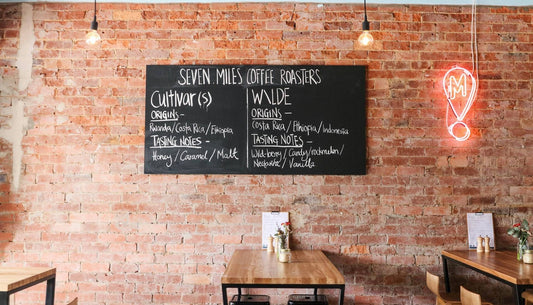 SEVEN MILES COFFEE ROASTERS
Cultivar(s)
ORIGINS –
Rwanda/Costa Rica/Ethiopia
TASTING NOTES –
Honey/Caramel/Malt
WILDE
ORIGINS –
Costa Rica/Ethiopia/Indonesia
TASTING NOTES –
Wild-berry/Candy/rockmelon/
Nectarine/Vanilla
M